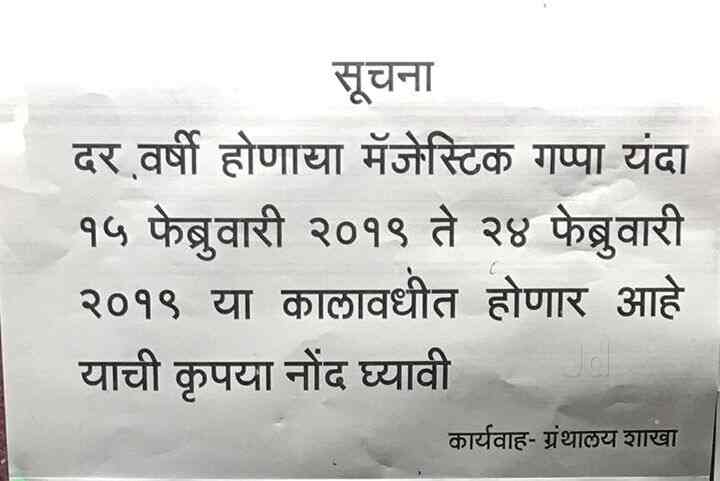 सूचना
दर वर्षी होणाया मॅजेस्टिक गप्पा यंदा
१५ फेब्रुवारी २०१९ ते २४ फेब्रुवारी
२०१९ या कालावधीत होणार आहे
याची कृपया नोंद घ्यावी
Jd
कार्यवाह- ग्रंथालय शाखा